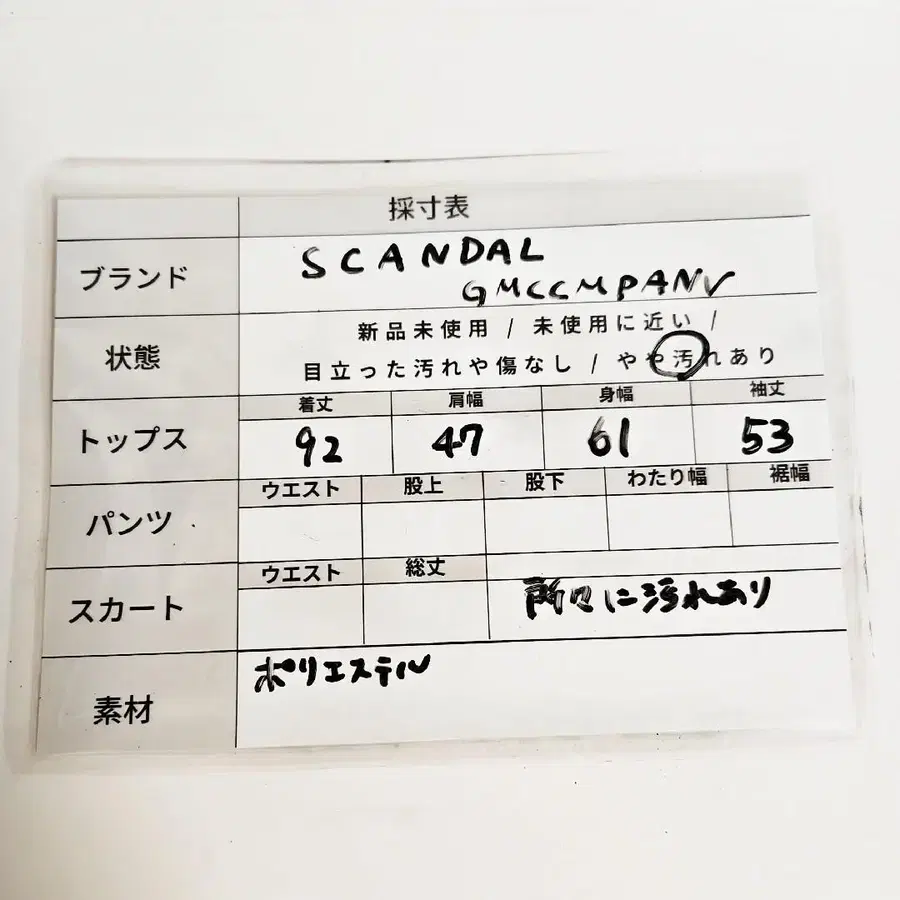 採寸表
ブランド
SCANDAL
GMCCMPANY
状態
新品未使用 / 未使用に近い /
目立った汚れや傷なし / やや汚れあり
トップス
着丈 肩幅 身幅 袖丈
92 47 61 53
パンツ
ウエスト 股上 股下 わたり幅 裾幅
スカート
ウエスト 総丈
所々に汚れあり
素材
ポリエステル